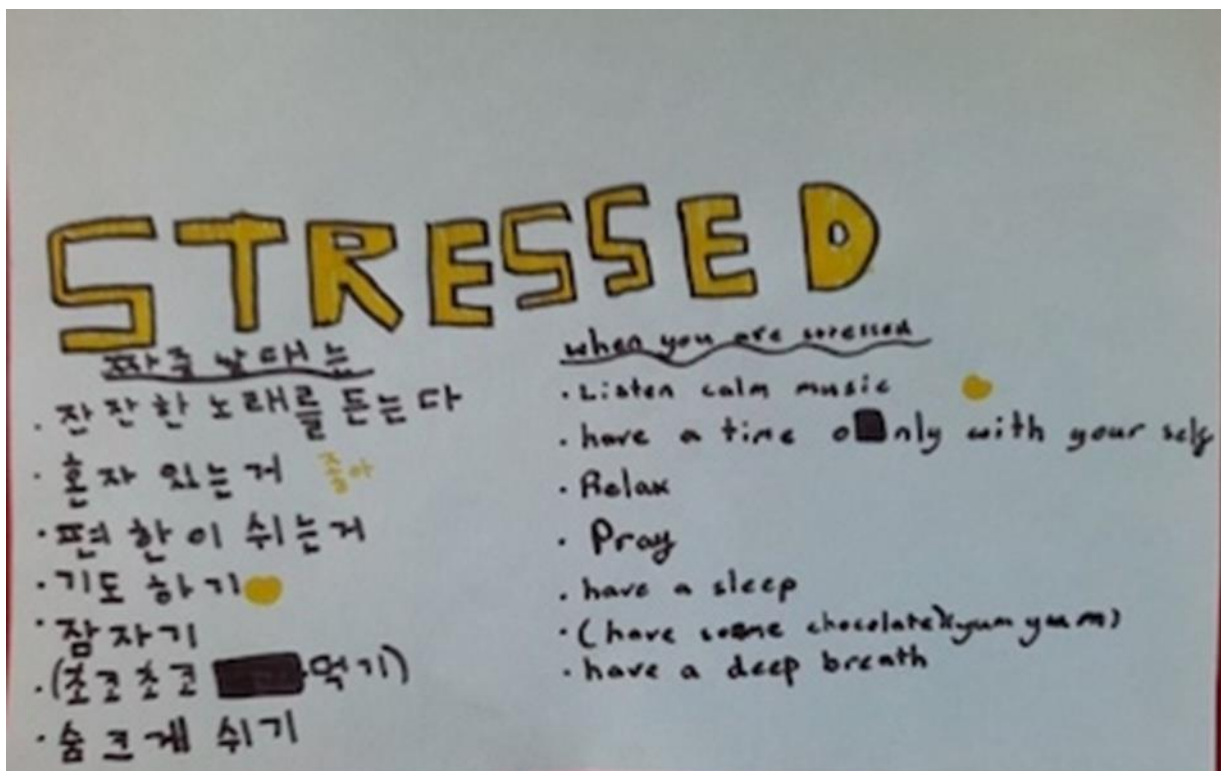 STRESSED
짜증 날 때는
· 잔잔한 노래를 든는다
· 혼자 있는거 좋아
· 편한이 쉬는거
· 기도 하기
· 잠자기
· (초코초코 먹기)
· 숨크게 쉬기
when you are stressed
· Listen calm music
· have a time only with your self
· Relax
· Pray
· have a sleep
· (have some chocolate)(yum yum)
· have a deep breath